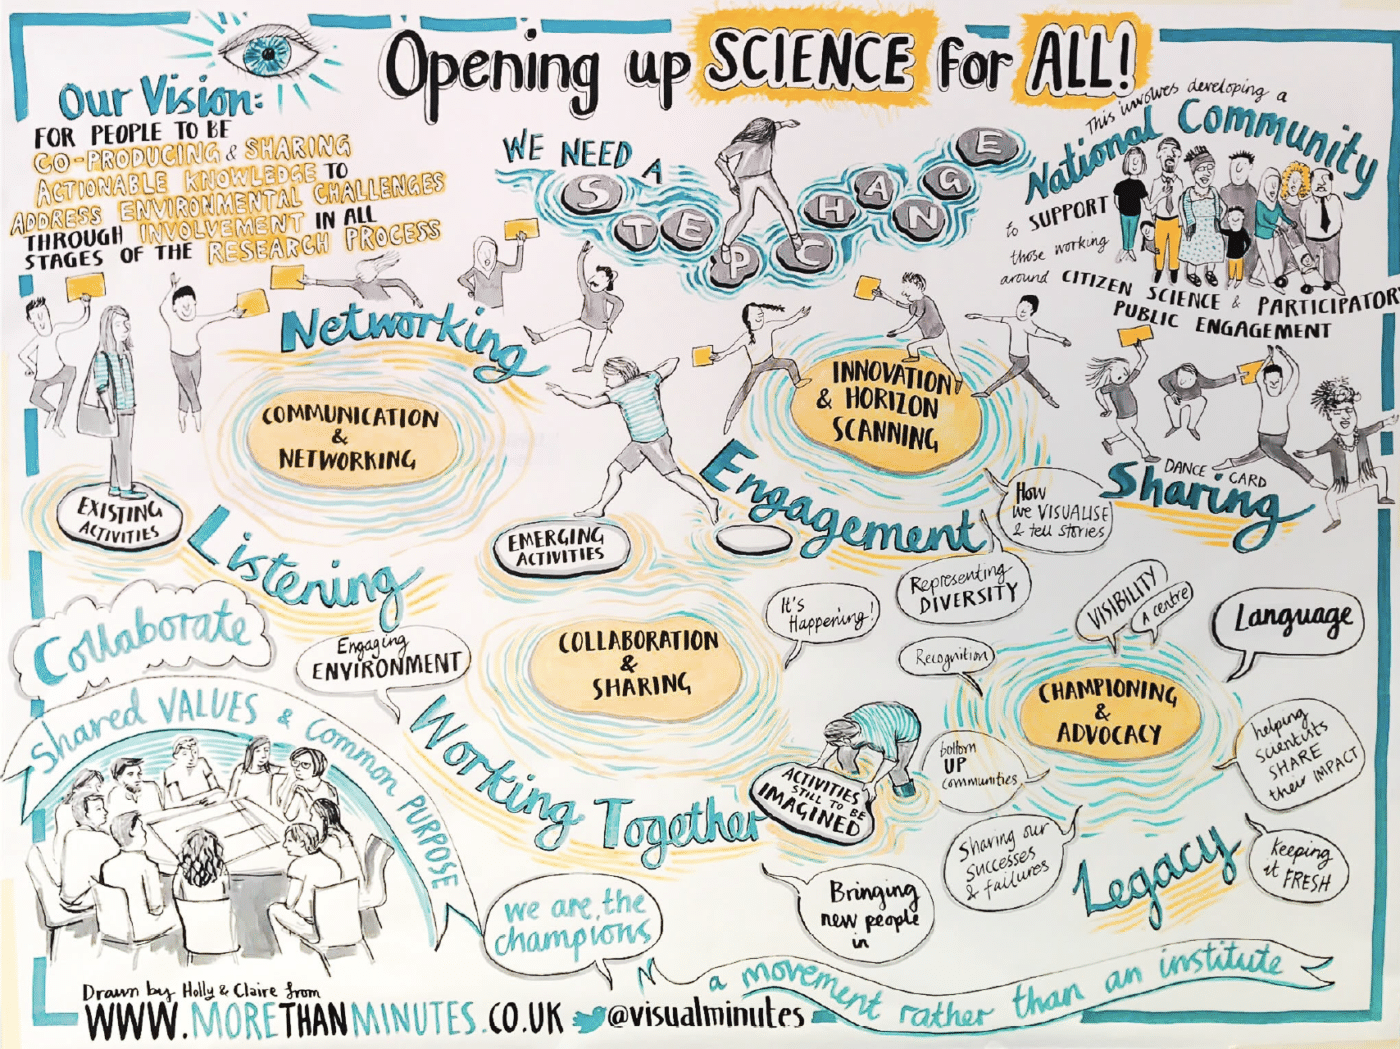 Opening up SCIENCE for ALL!
Our Vision:
FOR PEOPLE TO BE
CO-PRODUCING & SHARING
ACTIONABLE KNOWLEDGE TO
ADDRESS ENVIRONMENTAL CHALLENGES
THROUGH INVOLVEMENT IN ALL
STAGES OF THE RESEARCH PROCESS
WE NEED A
STEP CHANGE
This involves developing a
National Community
to SUPPORT
those working
around CITIZEN SCIENCE & PARTICIPATORY
PUBLIC ENGAGEMENT
Networking
COMMUNICATION
&
NETWORKING
INNOVATION
& HORIZON
SCANNING
EXISTING
ACTIVITIES
Listening
EMERGING
ACTIVITIES
Engagement
How
we VISUALISE
& tell stories
DANCE CARD
Sharing
Collaborate
Engaging
ENVIRONMENT
COLLABORATION
&
SHARING
It's
Happening!
Representing
DIVERSITY
Recognition
VISIBILITY
A centre
Language
CHAMPIONING
&
ADVOCACY
Shared VALUES & Common PURPOSE
Working Together
ACTIVITIES
STILL TO BE
IMAGINED
bottom
UP
communities
helping
scientists
SHARE
their IMPACT
Sharing our
successes
& failures
Legacy
keeping
it FRESH
Bringing
new people
in
we are the
champions
a movement rather than an institute
Drawn by Holly & Claire from
WWW.MORETHANMINUTES.CO.UK @visualminutes